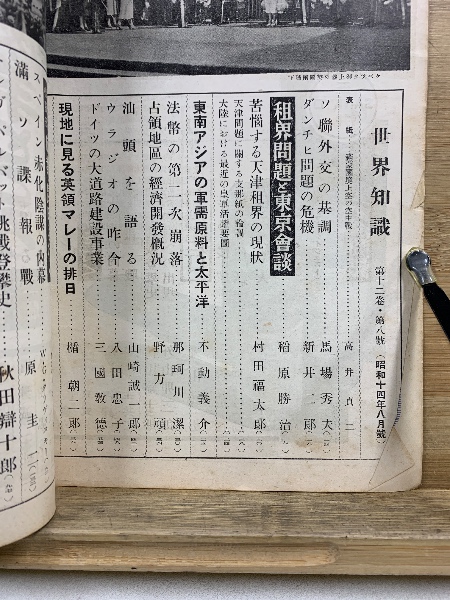 世界知識 第十二卷・第八號 (昭和十四年八月號)
表紙 高井貞二
ソ聯外交の基調 馬場秀夫
ダンチヒ問題の危機 新井二郎
租界問題と東京會談 稻原勝治
苦惱する天津租界の現狀 村田福太郎
天津問題に關する支那紙の論調
大陸における最近の皇軍活躍要圖
東南アジアの軍需原料と太平洋 不動義介
法幣の第二次崩落 那珂川潔
占領地區の經濟開發槪況 野方頑
汕頭を語る 山崎誠一郎
ウラジオの昨今 入田忠子
ドイツの大道路建設事業 三國敎德
現地に見る英領マレーの排日 楯朝二郎
スペイン赤化陰謀の內幕
滿ソ諜報戰 原圭二
秋田辯十郎
挑戰登攀史